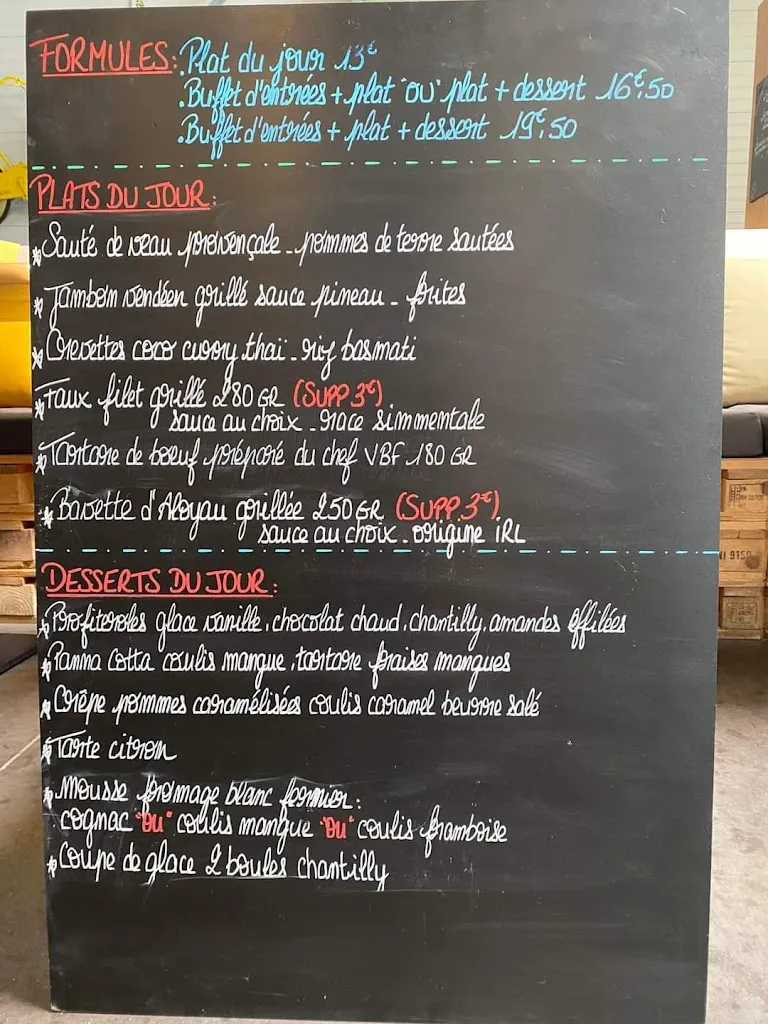 FORMULES: .Plat du jour 13€
.Buffet d'entrées + plat "ou" plat + dessert 16€,50
.Buffet d'entrées + plat + dessert 19€,50
PLATS DU JOUR:
* Sauté de veau provençale - pommes de terre sautées
* Jambon vendéen grillé sauce pineau - frites
* Crevettes coco curry thaï - riz basmati
* Faux filet grillé 280 GR (SUPP 3€)
sauce au choix - race simmentale
* Tartare de boeuf préparé du chef VBF 180 GR
* Bavette d'Aloyau grillée 250 GR (SUPP.3€)
sauce au choix - origine IRL
DESSERTS DU JOUR:
* Profiteroles glace vanille, chocolat chaud, chantilly, amandes effilées
* Panna Cotta coulis mangue, tartare fraises mangues
* Crêpe pommes caramélisées coulis caramel beurre salé
* Tarte citron
* Mousse fromage blanc fermier:
cognac "ou" coulis mangue "ou" coulis framboise
* Coupe de glace 2 boules chantilly